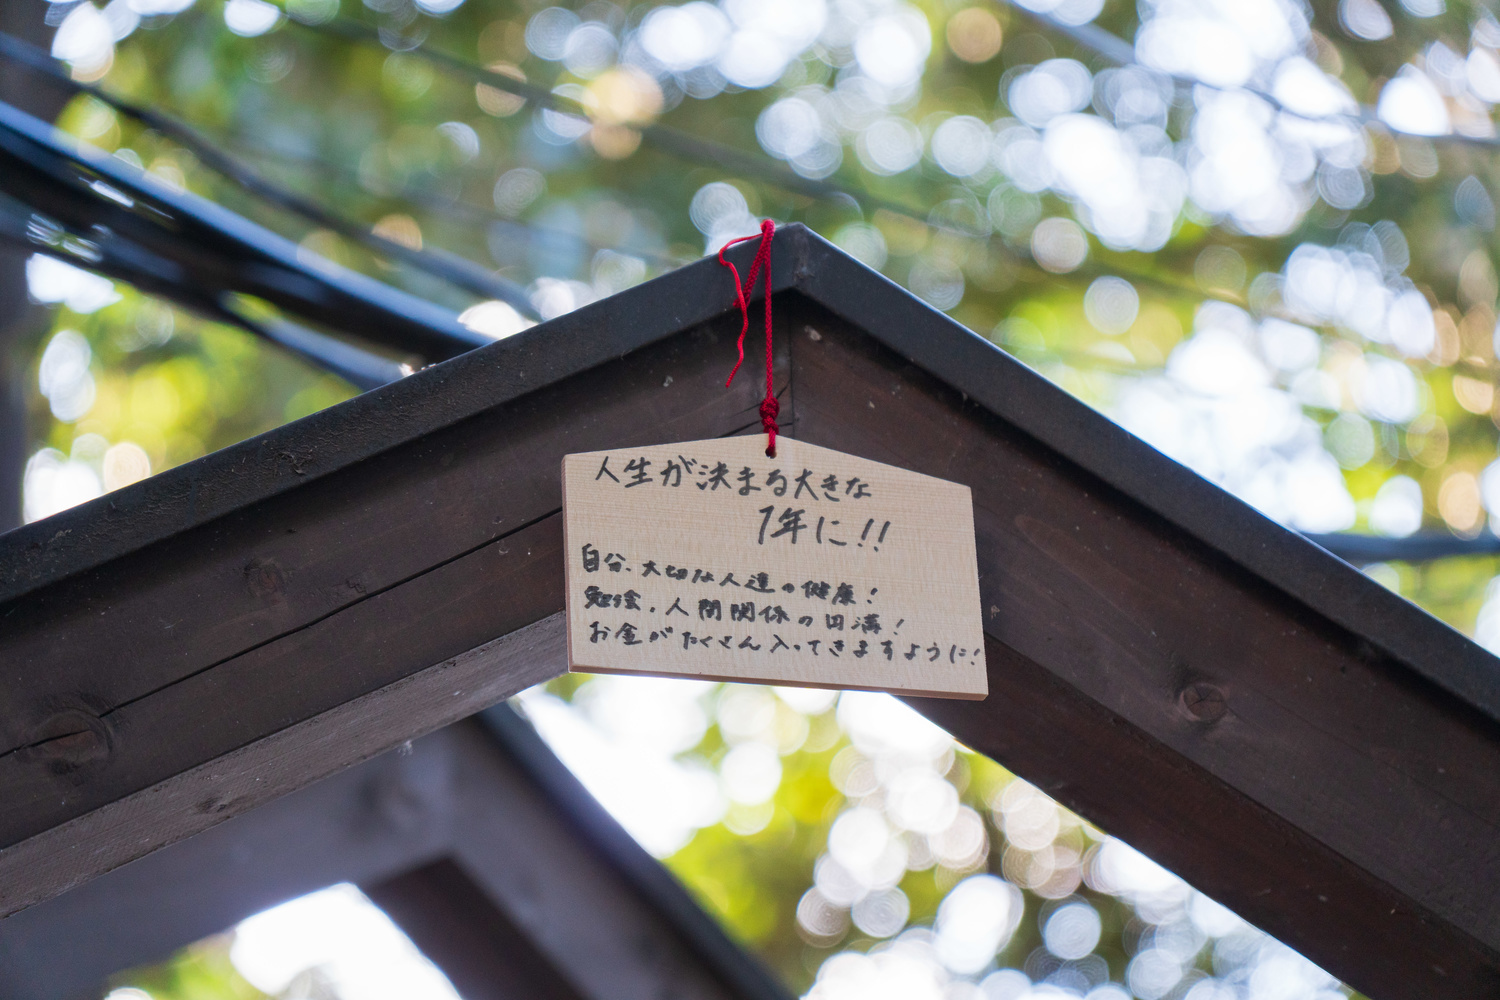 人生が決まる大きな
1年に!!
自分、大切な人達の健康!
勉強、人間関係の円満!
お金がたくさん入ってきますように!